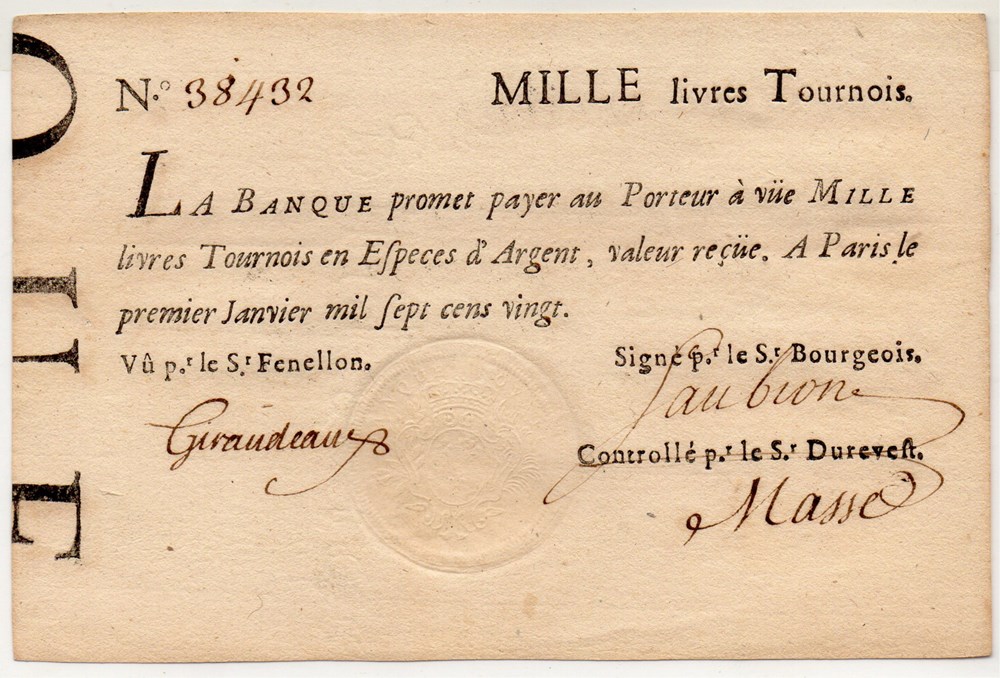 N.º 38432 MILLE livres Tournois.
LA BANQUE promet payer au Porteur à vüe MILLE
livres Tournois en Eſpeces d'Argent, valeur reçüe. A Paris le
premier Janvier mil ſept cens vingt.
Vû p.r le S.r Fenellon. Signé p.r le S.r Bourgeois.
Giraudeau Saubion
Controllé p.r le S.r Dureveſt.
Masse
QUE